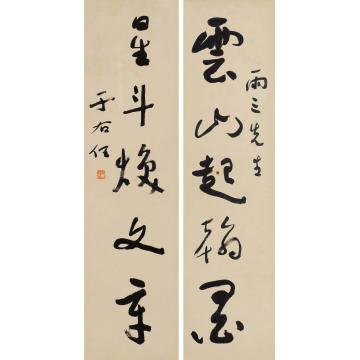 雲山起翰墨
雨三先生
星斗煥文章
于右任